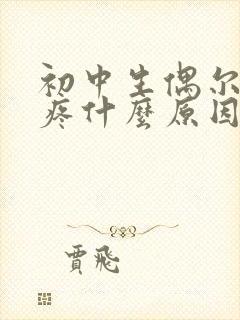 初中生偶尔
疼什麼原因
贾飛